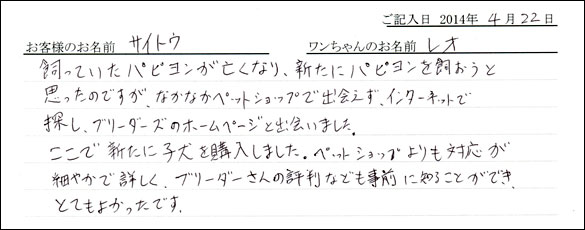 ご記入日 2014年 4月 22日
お客様のお名前 サイトウ ワンちゃんのお名前 レオ
飼っていたパピヨンが亡くなり、新たにパピヨンを飼おうと
思ったのですが、なかなかペットショップで出会えず、インターネットで
探し、ブリーダーズのホームページと出会いました。
ここで新たに子犬を購入しました。ペットショップよりも対応が
細やかで詳しく、ブリーダーさんの評判なども事前に知ることができ
とてもよかったです。